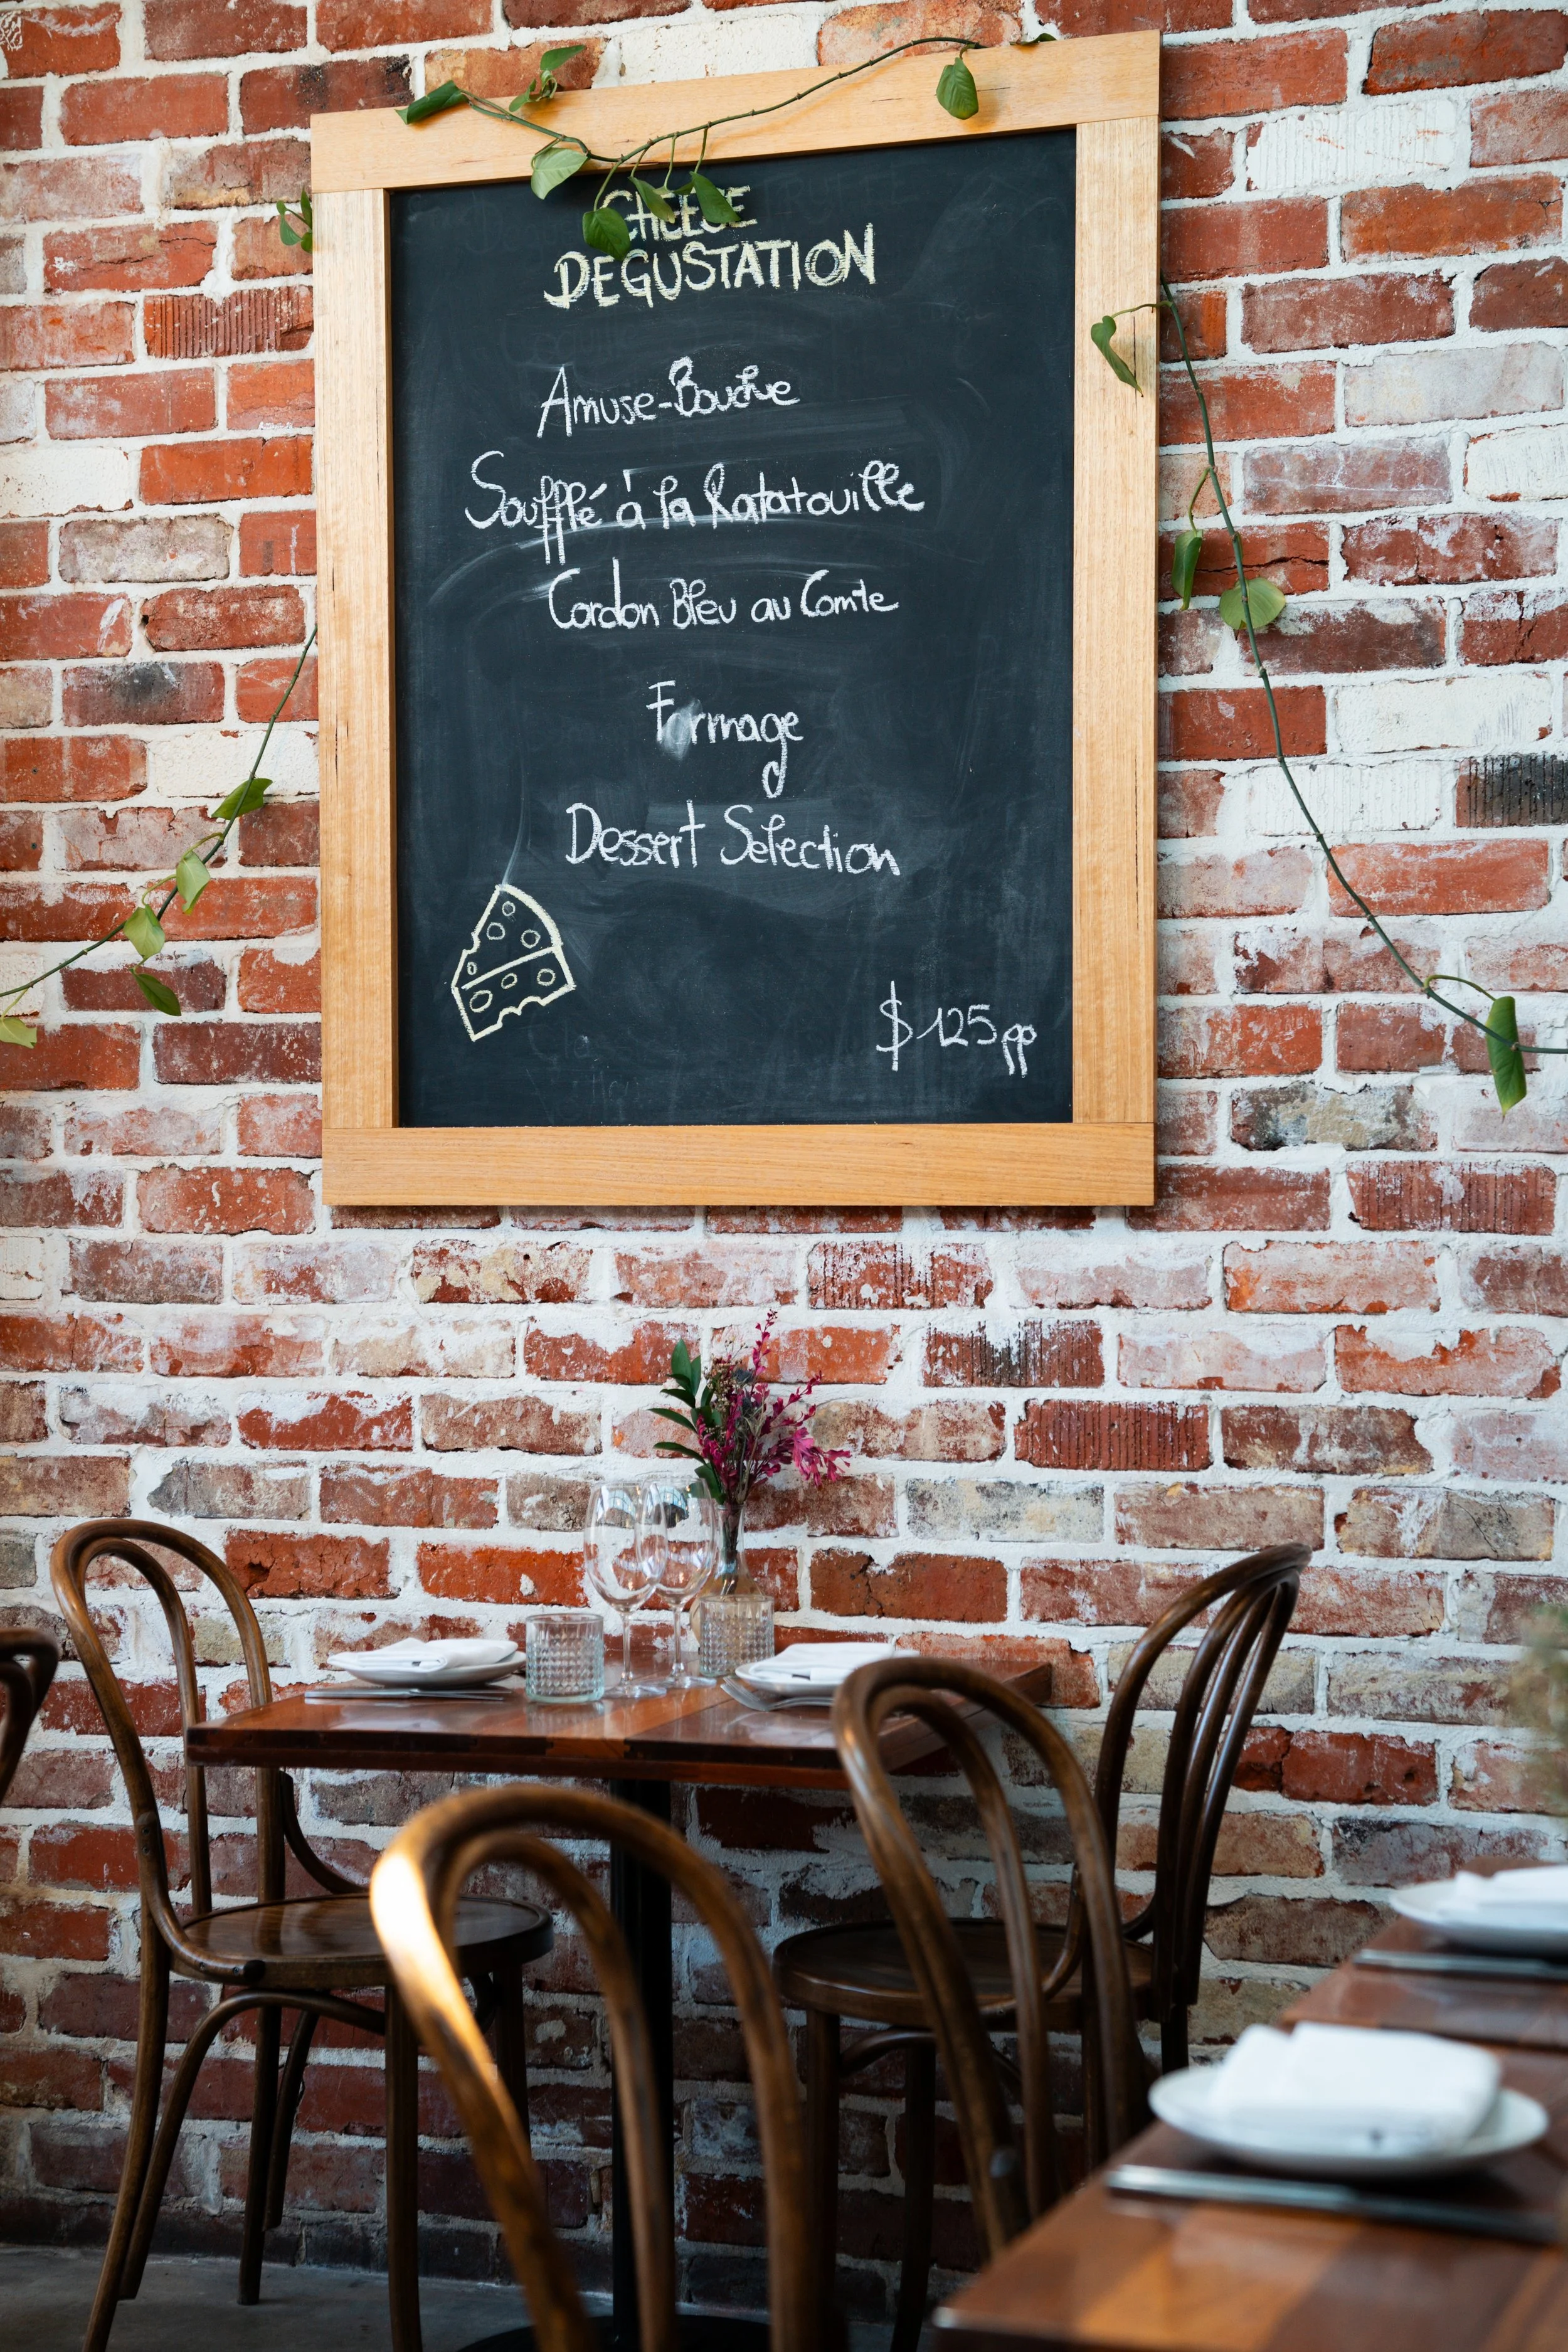 CHEESE
DEGUSTATION
Amuse-Bouche
Soufflé à la Ratatouille
Cordon Bleu au Comte
Formage
Dessert Selection
$125pp